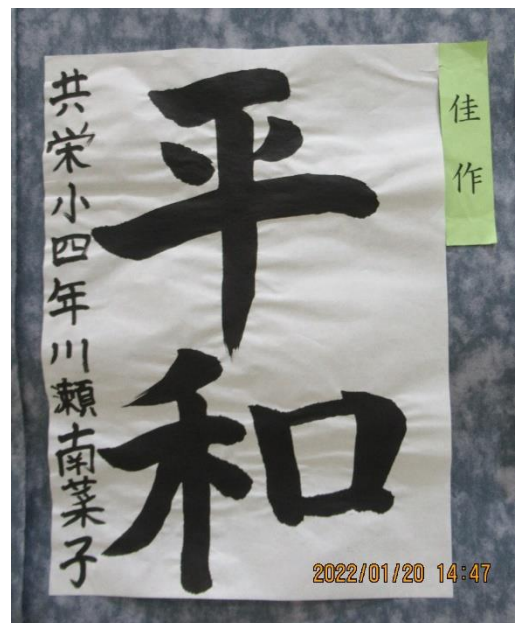 佳作
平和
共栄小四年川瀬南菜子
2022/01/20 14:47